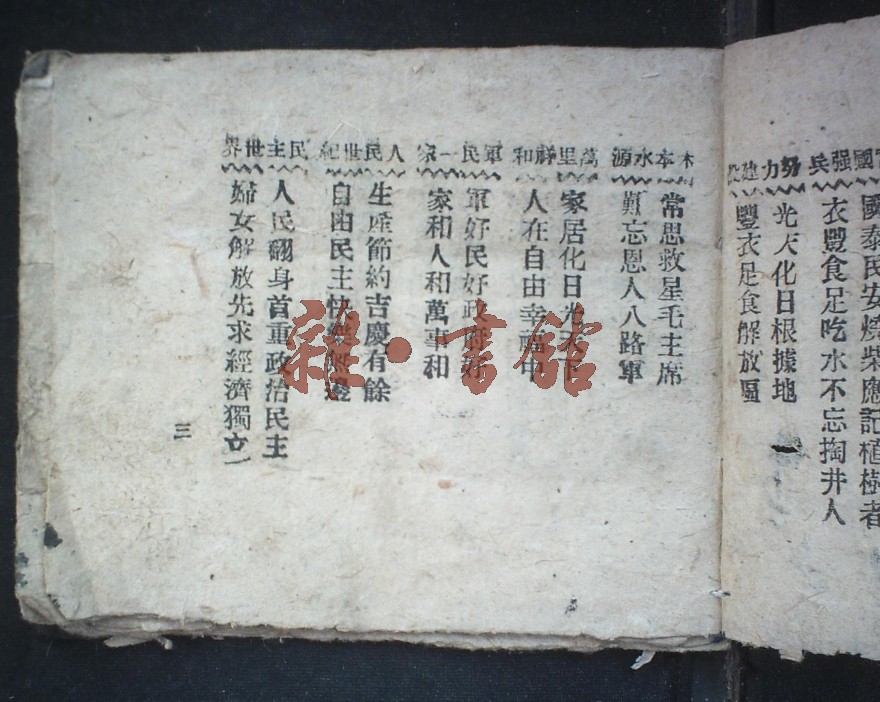 國强兵
國泰民安燒柴應記植樹者
衣豐食足吃水不忘掏井人
努力建
光天化日根據地
豐衣足食解放區
木本水源
常思救星毛主席
難忘恩人八路軍
萬里祥和
家居化日光天下
人在自由幸福中
軍民一家
軍好民好政府好
家和人和萬事和
人民世紀
生產節約吉慶有餘
自由民主快樂無邊
民主世界
人民翻身首重政治民主
婦女解放先求經濟獨立
三
雜·書館